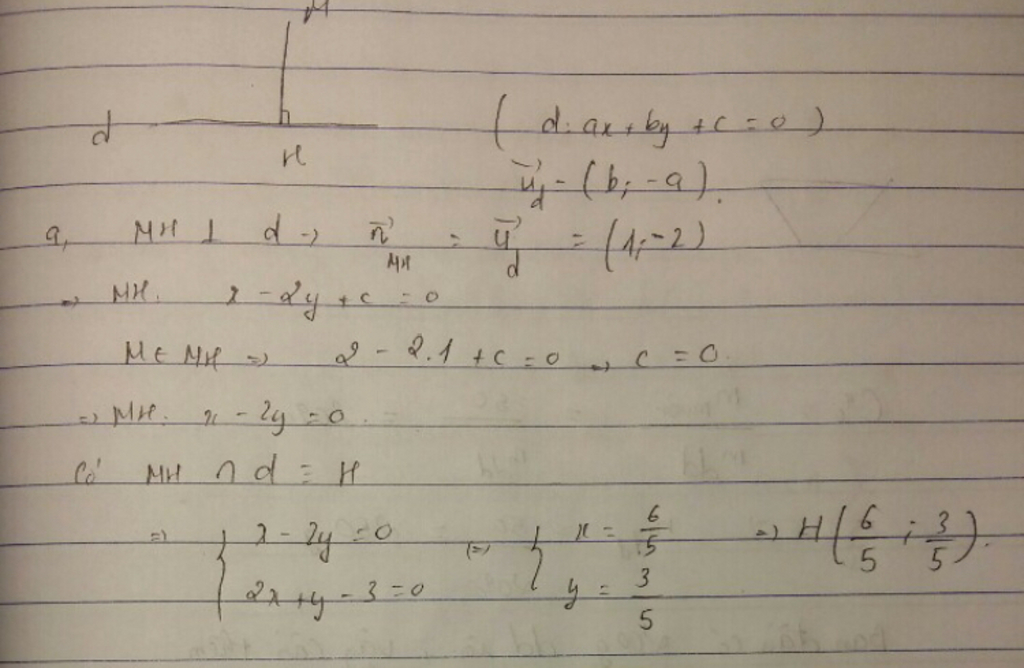 M
d
H
( d: ax + by + c = 0 )
u⃗_d = (b; -a).
a, MH ⊥ d → n⃗_MH = u⃗_d = (1; -2)
=> MH: x - 2y + c = 0
M ∈ MH => 2 - 2.1 + c = 0 => c = 0.
=> MH: x - 2y = 0.
Có MH ∩ d = H
=> { x - 2y = 0 (=> { x = 6/5 => H(6/5 ; 3/5).
2x + y - 3 = 0 y = 3/5